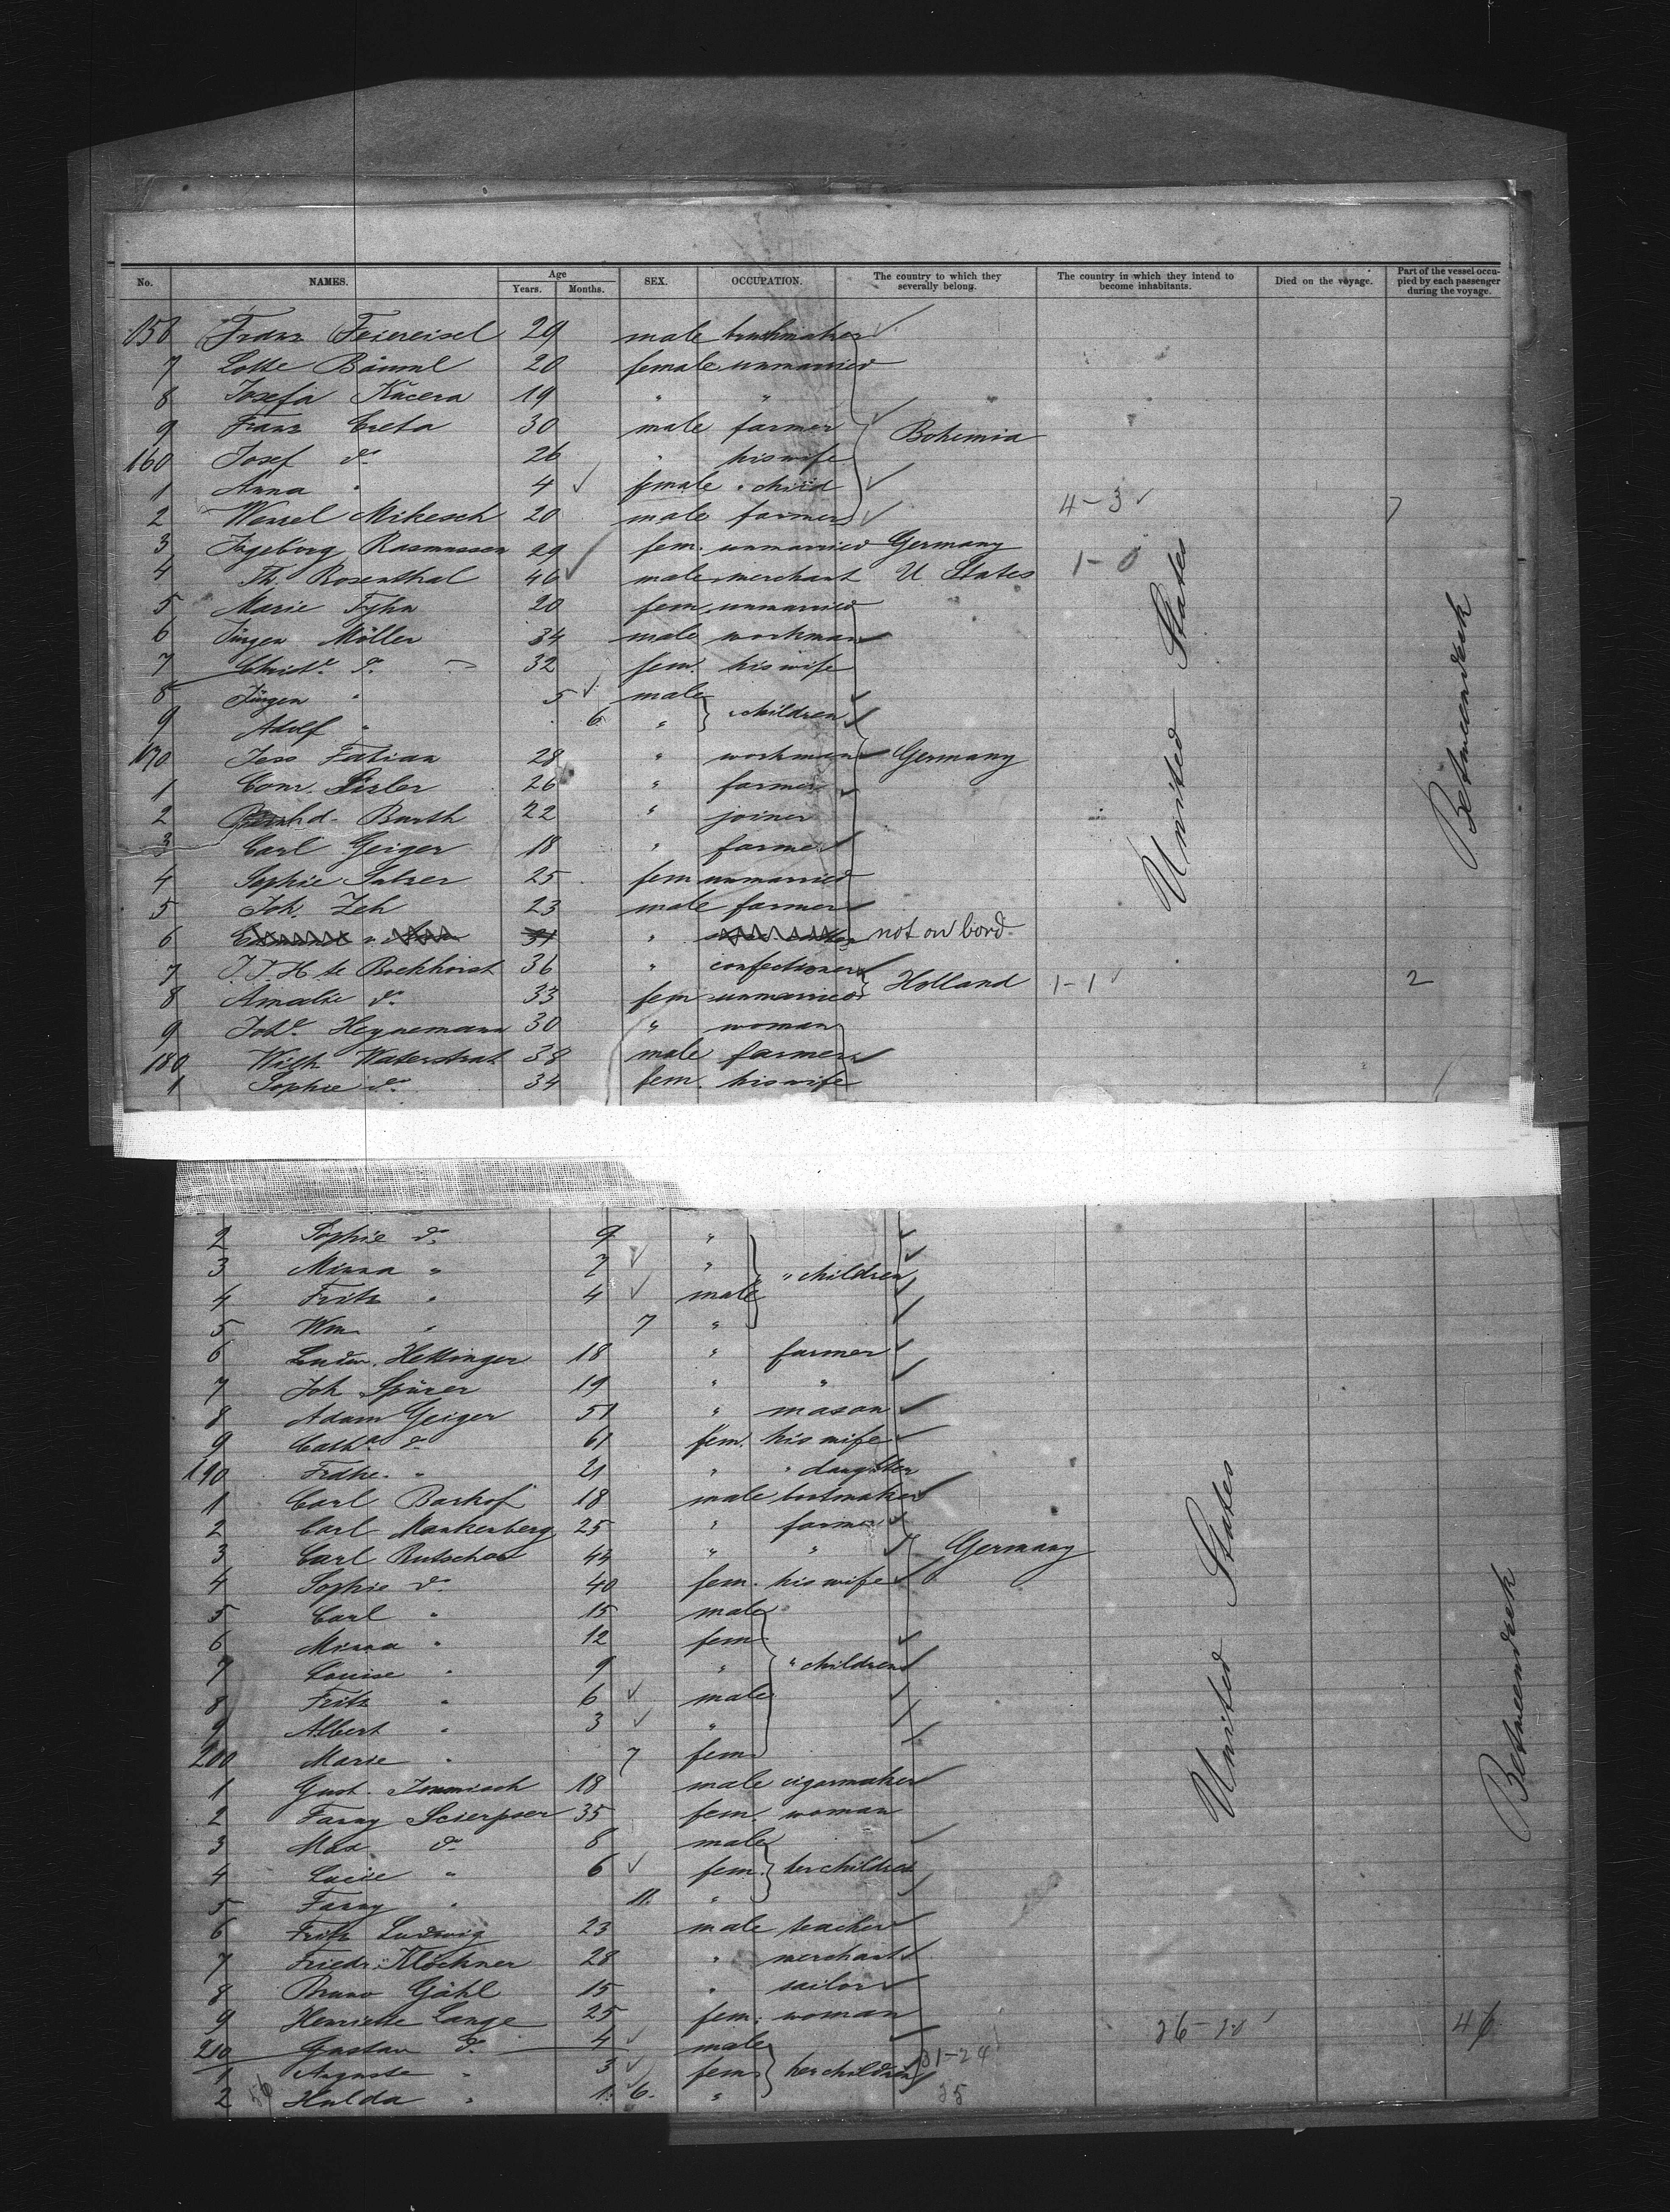 No. NAMES. Age Years. Months. SEX. OCCUPATION. The country to which they severally belong. The country in which they intend to become inhabitants. Died on the voyage. Part of the vessel occupied by each passenger during the voyage.
158 Franz Feiereisel 29 male brushmaker
7 Lotte Bäuml 20 female unmarried
8 Josefa Kucera 19 " "
9 Franz Creta 30 male farmer Bohemia
160 Josef do 26 " his wife
1 Anna " 4 female " child
2 Wenzel Mikesch 20 male farmer 4-3 7
3 Ingeborg Rasmussen 29 fem. unmarried Germany
4 Th. Rosenthal 46 male merchant U States 1-0
5 Marie Tyhn 20 fem. unmarried
6 Jürgen Möller 34 male workman
7 Christe do 32 fem. his wife
8 Jürgen " 5 male
9 Adolf " 6 " " children
170 Jess Fabian 28 " workman Germany
1 Conr. 26 " farmer
2 Bernhd. Barth 22 " joiner
3 Carl Geiger 18 " farmer
4 Sophie Salzer 25 fem unmarried
5 Joh. Zeh 23 male farmer
6 31 " not on bord
7 J. J. H. te Bockhorst 36 " confectioner
8 Amalie do 33 fem unmarried Holland 1-1 2
9 Johe Heynemann 30 " woman
180 Wilh Waterstrat 38 male farmer
1 Sophie do 34 fem. his wife
United States
Betweendeck
2 Sophie do 9 "
3 Minna " 7 " " children
4 Fritz " 4 male
5 Wm " 7 "
6 Ludw. Hettinger 18 " farmer
7 Joh Spürer 19 " "
8 Adam Geiger 51 " mason
9 Catha do 61 fem. his wife
190 Fridke. " 21 " " daughter
1 Carl Barkof 18 male bootmaker
2 Carl Mankenberg 25 " farmer
3 Carl Rutschow 44 " " Germany
4 Sophie do 40 fem. his wife
5 Carl " 15 male
6 Minna " 12 fem
7 Louise " 9 " " children
8 Fritz " 6 male
9 Albert " 3 "
200 Marie " 7 fem
1 Gust. 18 male cigarmaker
2 Fanny Scierpser 35 fem. woman
3 Max do 8 male
4 Lucie " 6 fem. her children
5 Fanny " 11. "
6 Fritz Ludwig 23 male teacher
7 Friedr. Klöckner 28 " merchant
8 Bruno Gähl 15 " sailor
9 Henriette Lange 25 fem. woman
210 Gustav do 4 male 46
1 Auguste " 3 fem her children 31-24
2 56 Hulda " 1. 6. " 25
United States
Betweendeck